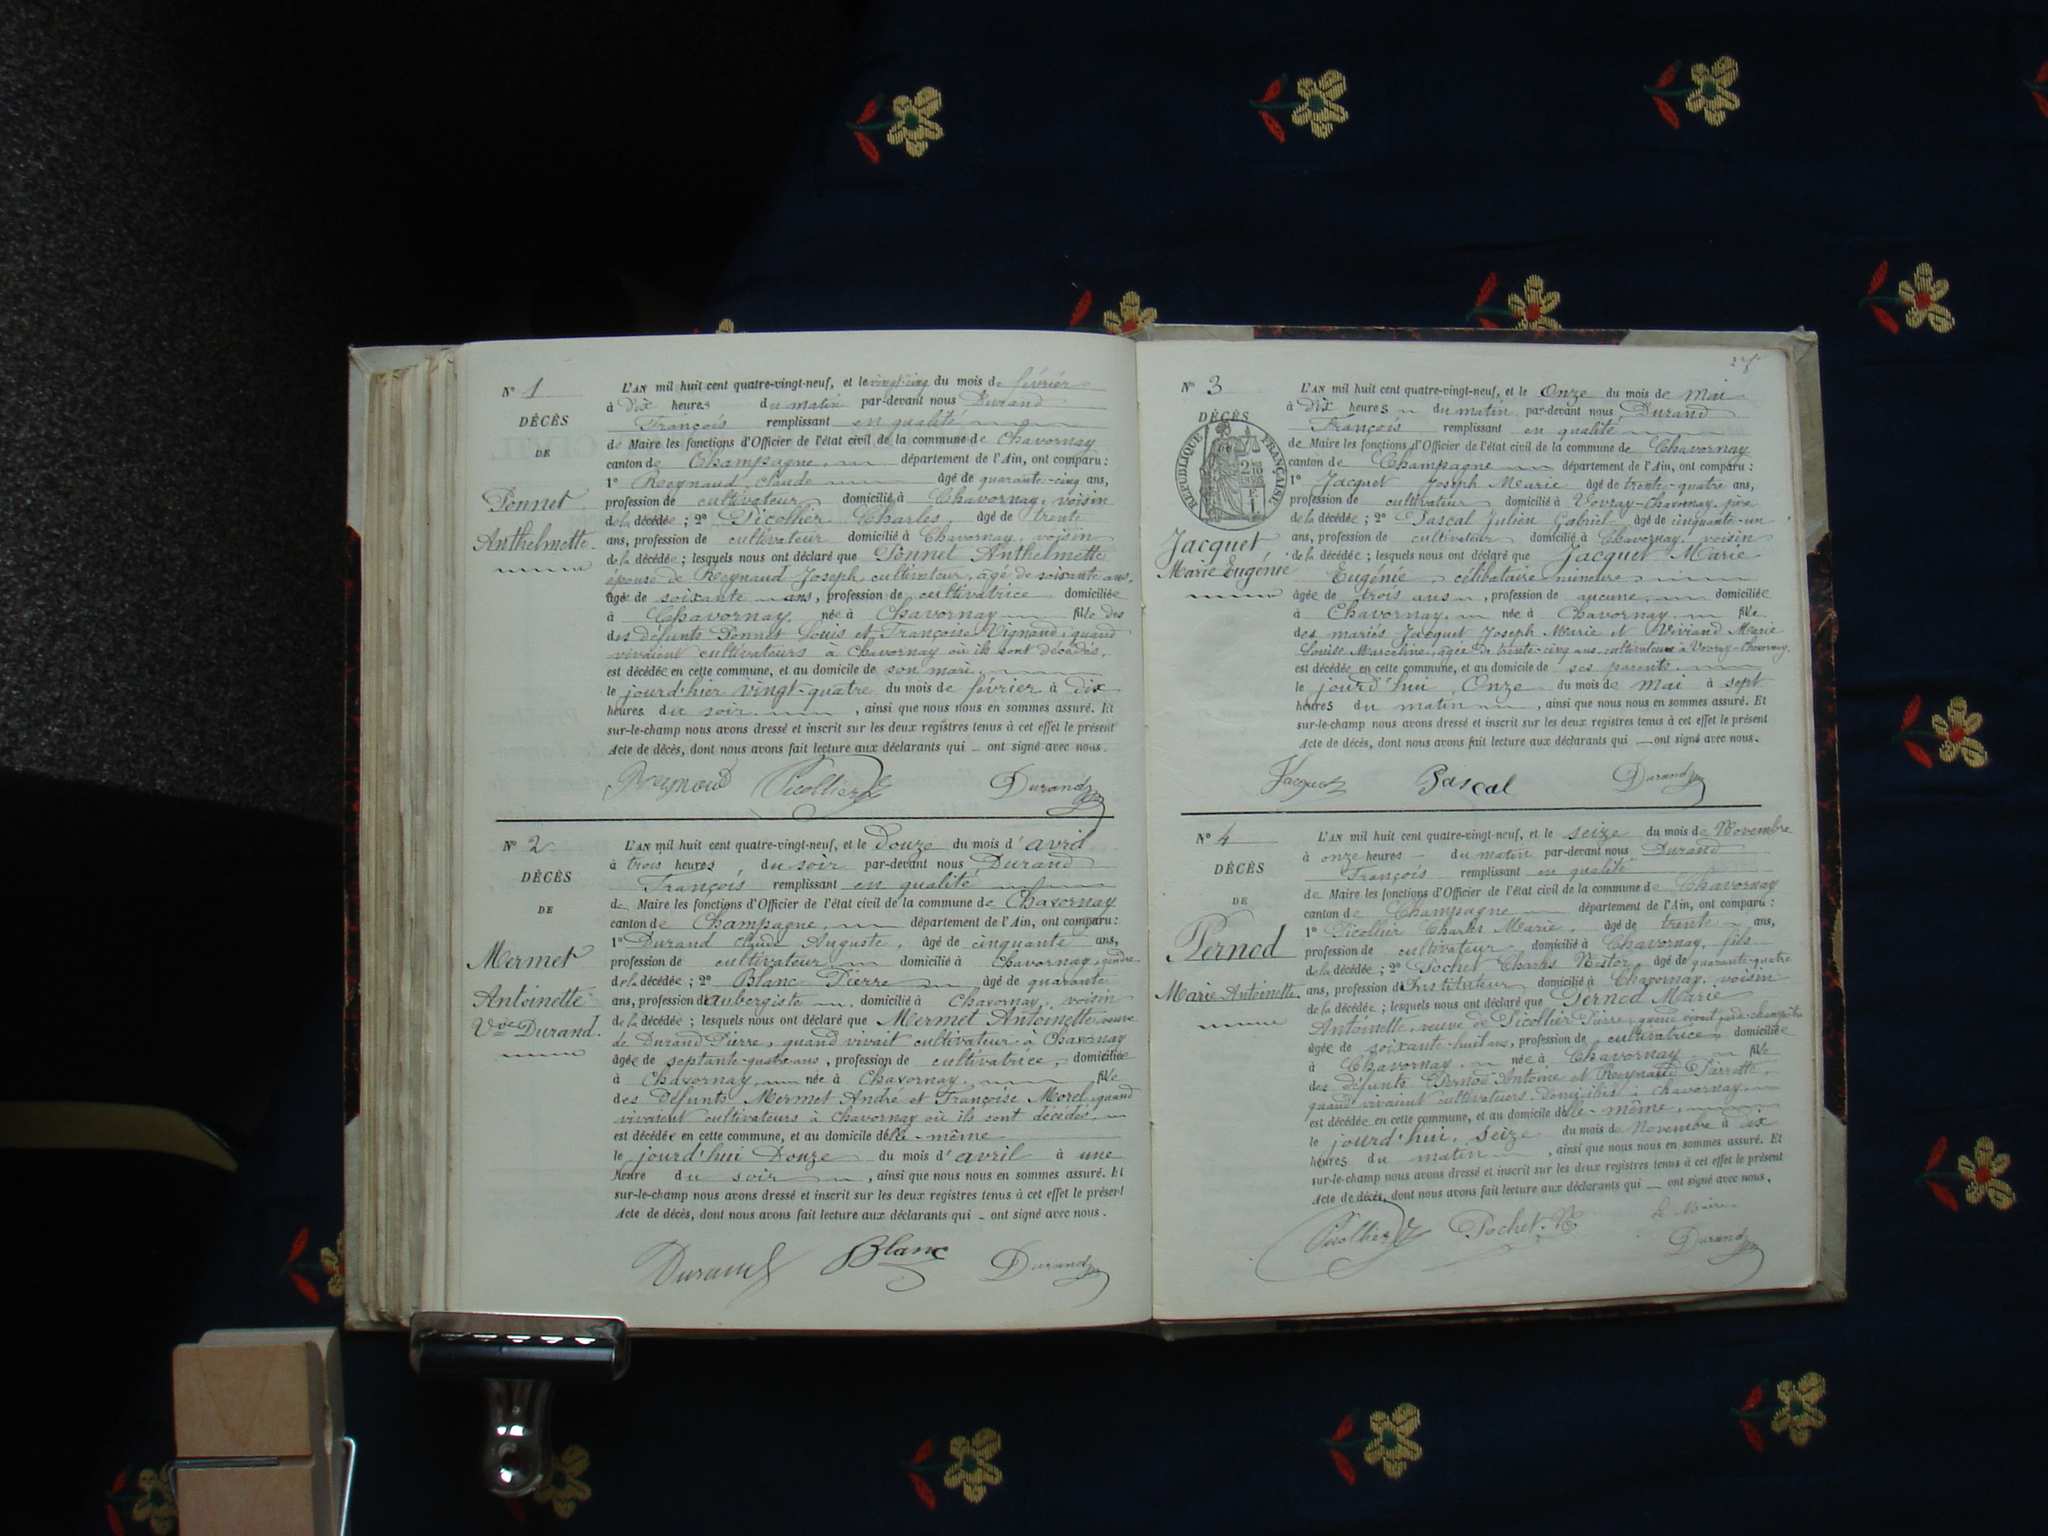 N° 1
DÉCÈS
DE
Ponnet
Anthelmette
L'AN mil huit cent quatre-vingt-neuf, et le vingt-cinq du mois de février
à Dix heures du matin par-devant nous Durand
François remplissant en qualité
de Maire les fonctions d'Officier de l'état civil de la commune de Chavornay
canton de Champagne, département de l'Ain, ont comparu :
1° Reynaud Claude âgé de quarante-cinq ans,
profession de cultivateur domicilié à Chavornay, voisin
de la décédée ; 2° Picollier Charles, âgé de trente
ans, profession de cultivateur domicilié à Chavornay, voisin
de la décédée ; lesquels nous ont déclaré que Ponnet Anthelmette
épouse de Reynaud Joseph, cultivateur, âgé de soixante ans,
âgée de soixante ans, profession de cultivatrice domiciliée
à Chavornay, née à Chavornay fille des
des défunts Ponnet Louis et Françoise Vignand, quand
vivaient cultivateurs à Chavornay où ils sont décédés,
est décédée en cette commune, et au domicile de son mari,
le jourd'hier vingt-quatre du mois de février à dix
heures du soir, ainsi que nous nous en sommes assuré. Et
sur-le-champ nous avons dressé et inscrit sur les deux registres tenus à cet effet le présent
Acte de décès, dont nous avons fait lecture aux déclarants qui ont signé avec nous.
Reynaud Picollier Durand
N° 2
DÉCÈS
DE
Mermet
Antoinette
Vve Durand.
L'AN mil huit cent quatre-vingt-neuf, et le Douze du mois d'avril
à trois heures du soir par-devant nous Durand
François remplissant en qualité
de Maire les fonctions d'Officier de l'état civil de la commune de Chavornay
canton de Champagne, département de l'Ain, ont comparu :
1° Durand Claude Auguste, âgé de cinquante ans,
profession de cultivateur domicilié à Chavornay, gendre
de la décédée ; 2° Blanc Pierre âgé de quarante
ans, profession d'aubergiste domicilié à Chavornay, voisin
de la décédée ; lesquels nous ont déclaré que Mermet Antoinette, veuve
de Durand Pierre, quand vivait cultivateur à Chavornay
âgée de septante-quatre ans, profession de cultivatrice, domiciliée
à Chavornay, née à Chavornay, fille
des défunts Mermet André et Françoise Morel, quand
vivaient cultivateurs à Chavornay où ils sont décédés,
est décédée en cette commune, et au domicile d'elle-même
le jourd'hui Douze du mois d'avril à une
heure du soir, ainsi que nous nous en sommes assuré. Et
sur-le-champ nous avons dressé et inscrit sur les deux registres tenus à cet effet le présent
Acte de décès, dont nous avons fait lecture aux déclarants qui ont signé avec nous.
Durand Blanc Durand
N° 3
DÉCÈS
RÉPUBLIQUE FRANÇAISE
Jacquet
Marie Eugénie
L'AN mil huit cent quatre-vingt-neuf, et le Onze du mois de Mai
à Dix heures du matin par-devant nous Durand
François remplissant en qualité
de Maire les fonctions d'Officier de l'état civil de la commune de Chavornay
canton de Champagne département de l'Ain, ont comparu :
1° Jacquet Joseph Marie âgé de trente-quatre ans,
profession de cultivateur domicilié à Vovray-Chavornay, père
de la décédée ; 2° Pascal Julien Gabriel âgé de cinquante-un
ans, profession de cultivateur domicilié à Chavornay, voisin
de la décédée ; lesquels nous ont déclaré que Jacquet Marie
Eugénie célibataire mineure
âgée de trois ans, profession de aucune, domiciliée
à Chavornay, née à Chavornay, fille
des mariés Jacquet Joseph Marie et Viviand Marie
Louise Marceline, âgée de trente-cinq ans, cultivateurs à Vovray-Chavornay,
est décédée en cette commune, et au domicile de ses parents,
le jourd'hui, Onze du mois de Mai à sept
heures du matin, ainsi que nous nous en sommes assuré. Et
sur-le-champ nous avons dressé et inscrit sur les deux registres tenus à cet effet le présent
Acte de décès, dont nous avons fait lecture aux déclarants qui ont signé avec nous.
Jacquet Pascal Durand
N° 4
DÉCÈS
DE
Pernod
Marie Antoinette.
L'AN mil huit cent quatre-vingt-neuf, et le seize du mois de Novembre
à onze heures du matin par-devant nous Durand
François remplissant en qualité
de Maire les fonctions d'Officier de l'état civil de la commune de Chavornay
canton de Champagne département de l'Ain, ont comparu :
1° Picollier Charles Marie, âgé de trente ans,
profession de cultivateur domicilié à Chavornay, fils
de la décédée ; 2° Pochet Charles Nestor, âgé de quarante-quatre
ans, profession d'Instituteur domicilié à Chavornay, voisin
de la décédée ; lesquels nous ont déclaré que Pernod Marie
Antoinette, veuve de Picollier Pierre, quand vivait garde-champêtre
âgée de soixante-huit ans, profession de cultivatrice, domiciliée
à Chavornay, née à Chavornay fille
des défunts Pernod Antoine et Reynaud Pierrette,
quand vivaient cultivateurs domiciliés à Chavornay,
est décédée en cette commune, et au domicile d'elle-même,
le jourd'hui, seize du mois de Novembre à dix
heures du matin, ainsi que nous nous en sommes assuré. Et
sur-le-champ nous avons dressé et inscrit sur les deux registres tenus à cet effet le présent
Acte de décès, dont nous avons fait lecture aux déclarants qui ont signé avec nous.
Le Maire
Picollier Pochet N Durand